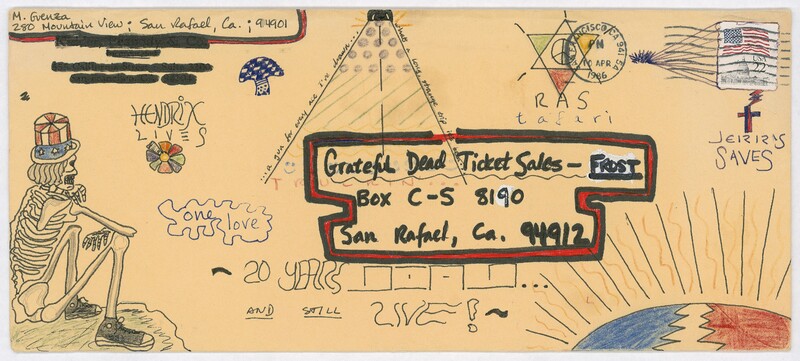 M. Guenza
280 Mountain View; San Rafael, Ca.; 94901
HENDRIX
LIVES
...a gun for every ace i've drawn...
what a long strange trip it's
RAS
tafari
SAN FRANCISCO CA 941 54
PM
10 APR
1986
USA
22
JERRY
SAVES
Grateful Dead Ticket Sales — FROST
TRUCKIN...
Box C-S 8190
San Rafael, Ca. 94912
one love
~ 20 YEARS
...
AND STILL LIVE! ~